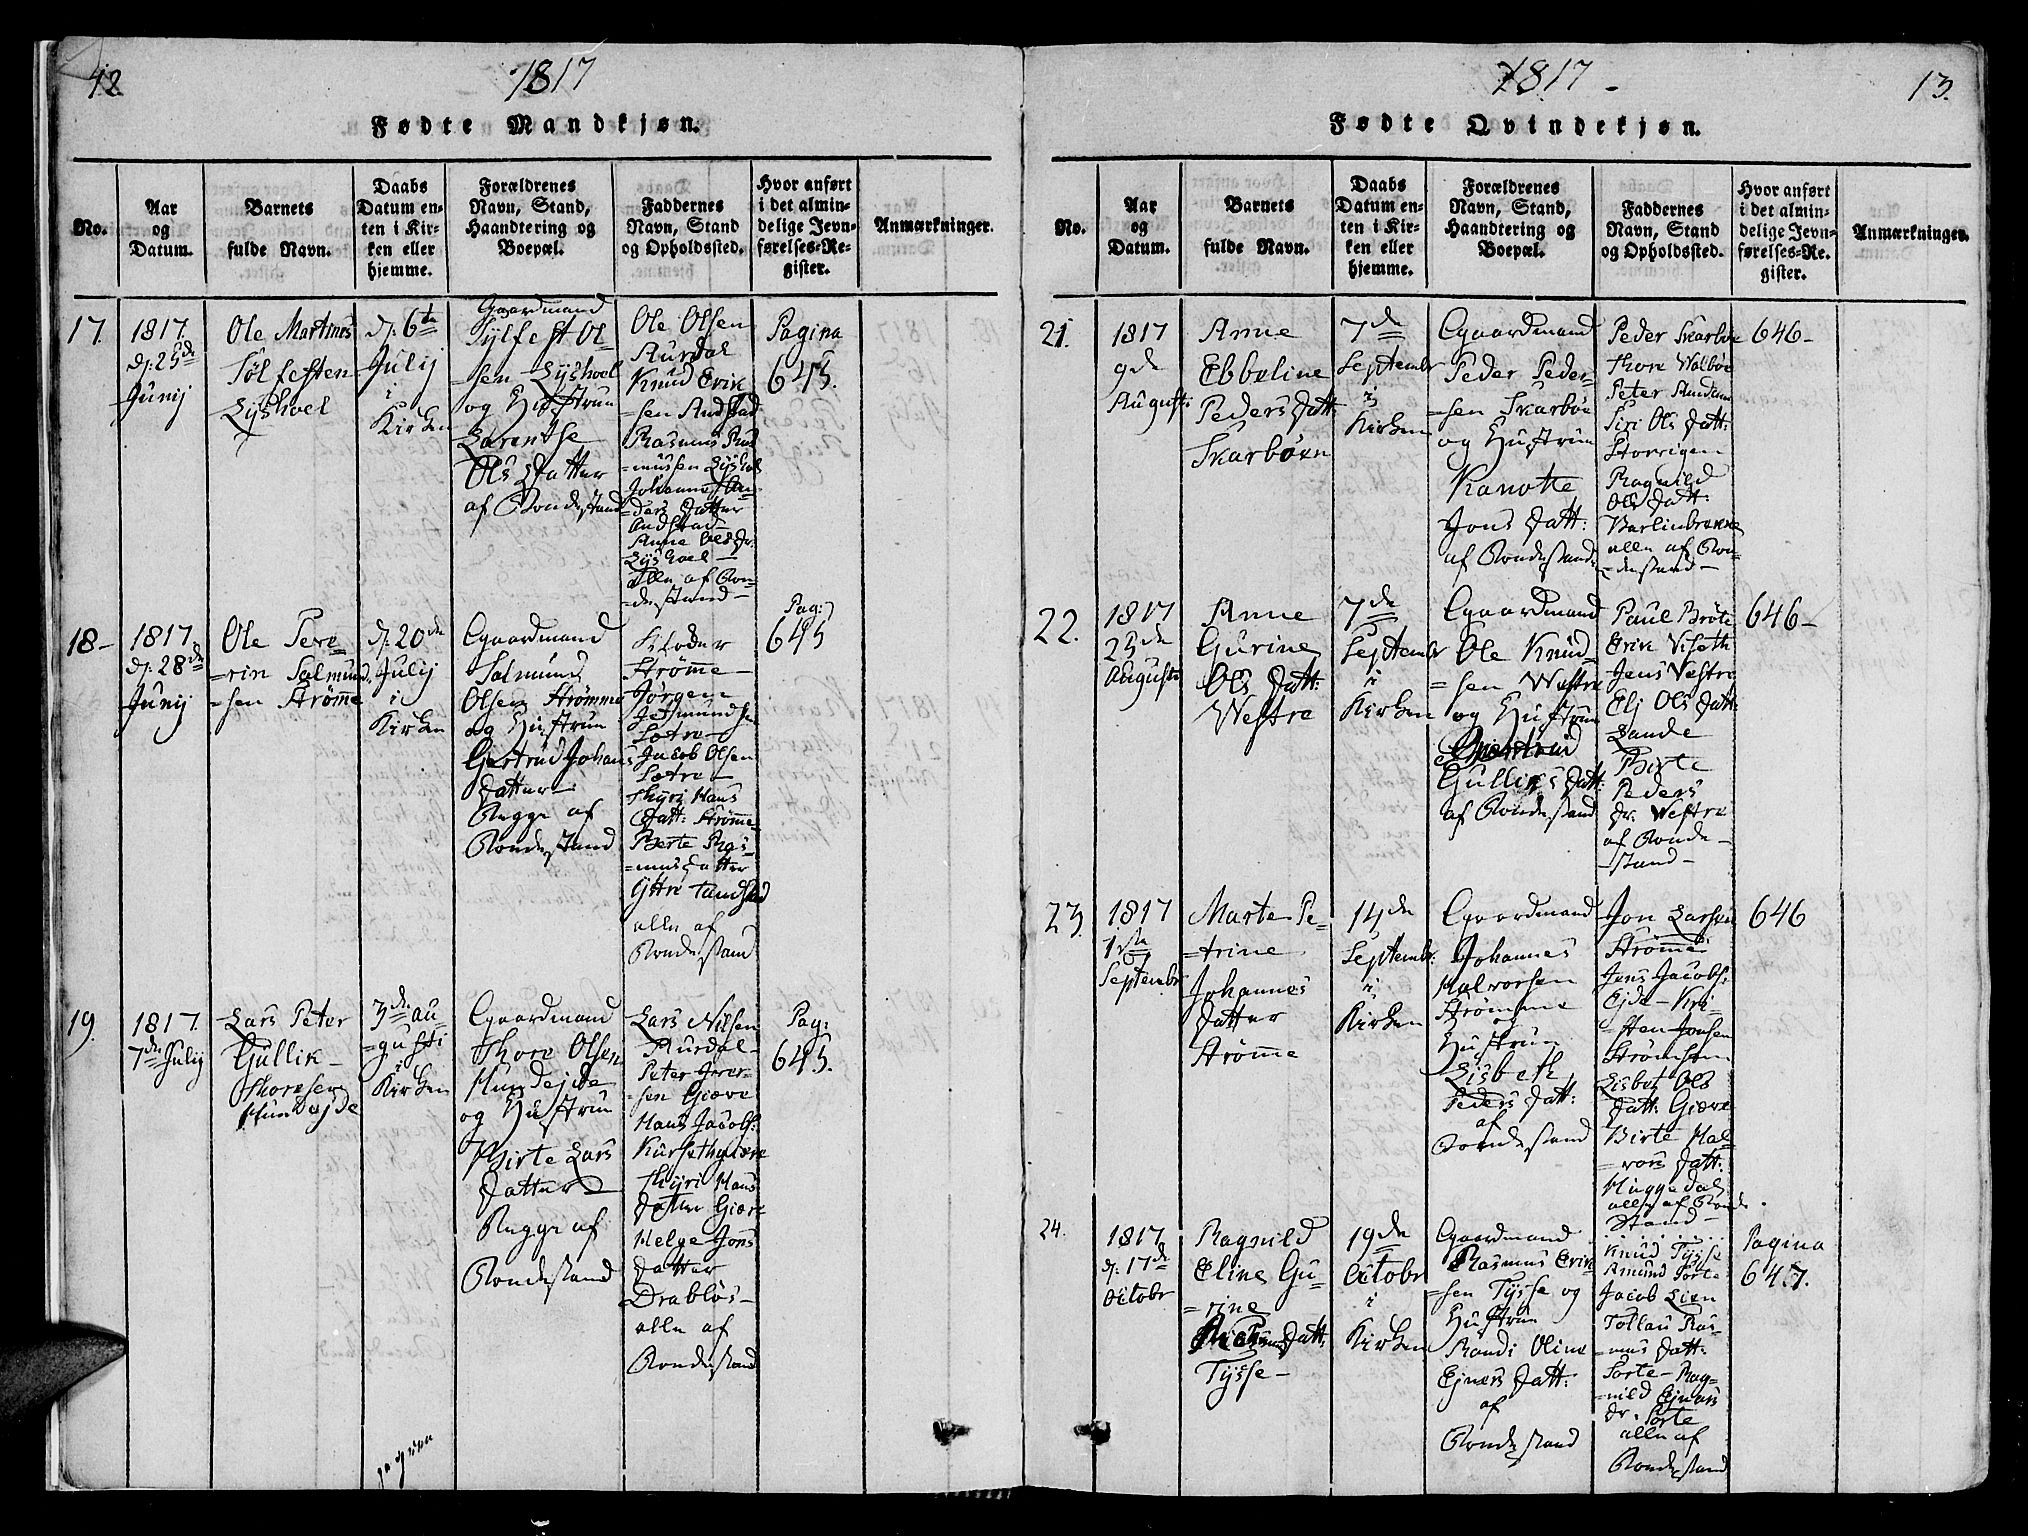 12.
1817
Fødte Mandkjøn.
No.
Aar
og
Datum.
Barnets
fulde Navn.
Daabs
Datum en-
ten i Kir-
ken eller
hjemme.
Forældrenes
Navn, Stand,
Haandtering og
Boepæl.
Faddernes
Navn, Stand
og Opholdssted.
Hvor anført
i det almin-
delige Jevn-
førelses-Re-
gister.
Anmærkninger.
17.
1817.
d: 25de
Junij
Ole Martinus
Tölfesten
Lyshoel
d: 6te
Julij
i
Kirken
Gaardmand
Tylfest Ol-
=sen Lyshoel
og Hustrue
Larentse
Ols Datter
af Bondestand
Ole Olsen
Aurdal
Knud Erik
=sen Andstad
Rasmus Ras
=mussen Lyshoel
Johanne An-
=ders Datter
Andstad
Anne Ols Dr.
Lyshoel
alle af Bon=
=destand
Pagina
645.
18
1817
d: 28de
Junij
Ole Pere
=rin Salmund
=sen Strømme
d: 20de
Julij
i
Kirken
Gaardmand
Salmund
Olsen Strømme
og Hustrue
Gertrud Johans
Datter
Begge af
Bondestand
Strømme
Jørgen
Sætre
Jacob Olsen
Sætre
Thyri Hans
Datt: Strømme
Berte Ras-
=mus Datter
Yttre Tandstad
alle af
Bondestand
Pag:
645
19.
1817.
7de Julij
Lars Peter
Gullik
Thoresen
Hundejde
3de au-
=gusti
i
Kirken
Gaardmand
Thore Olsen
Hundejde
og Hustrue
Birte Lars
Datter
Begge af
Bondestand
Lars Nilsen
Aurdal
Peter Iver-
=sen Giære
Hans Jacobs:
Thyri Hans
Datter Giære
Helge Jons
Datter
Drabløs
alle af
Bondestand
Pag:
645.
1817
13.
Fødte Qvindekjøn.
No.
Aar
og
Datum.
Barnets
fulde Navn.
Daabs
Datum en-
ten i Kir-
ken eller
hjemme.
Forældrenes
Navn, Stand,
Haandtering og
Boepæl.
Faddernes
Navn, Stand
og Opholdssted.
Hvor anført
i det almin-
delige Jevn-
førelses-Re-
gister.
Anmærkninger.
21.
1817
9de
Augusti
Anne
Ebbeline
Peders Datt:
Skarbøen
7de
Septembr
i
Kirken
Gaardmand
Peder Peder-
=sen Skarbøe
og Hustrue
Kanotte
Jons Datt:
af Bondestand
Peder Skarbøe
Thore Walbøe
Peter
Siri Ols Datt:
Ragnild
Ols Datt:
alle af Bon-
=destand
646
22.
1817
25de
Augusti
Anne
Gurine
Ols Datt:
Westre
7de
Septembr
i
Kirken
Gaardmand
Ole Knud
=sen Westre
og Hustrue
Gulliks Datt:
af Bondestand
Paul Brøte
Erik Viseth
Jens Westre
Eli Ols Datt:
Lande
Birte
Peders
Dr. Westre
af Bonde-
stand
646
23.
1817
1ste
Septembr
Marte Pe-
=trine
Johannes
Datter
Strømme
14de
Septembr.
i
Kirken
Gaardmand
Johannes
Halvorsen
Strømme
Hustrue
Lisbeth
Peders Datt:
af
Bondestand
Jon Larsen
Strømme
Jens Jacobs:
Ejde Kri-
=sten Jonsen
Lisbet Ols
Datt: Giære
Birte Hal-
=vors Datt:
Huggedal
alle af Bonde
stand
646
24.
1817
d: 17de
Octobr
Ragnild
Eline Gu-
=rine
Datt:
Tysse
19de
Octobr
i
Kirken
Gaardmand
Rasmus Erik
=sen Tysse og
Hustrue
Randi Oline
Ejners Datt:
af
Bondestand
Knud Tysse
Amund Sorte
Jacob Lien
Tollau Ras-
=mus Datt:
Sorte Rag-
=nild Ejnars
Dr. Sorte
alle af
Bondestand
Pagina
647.